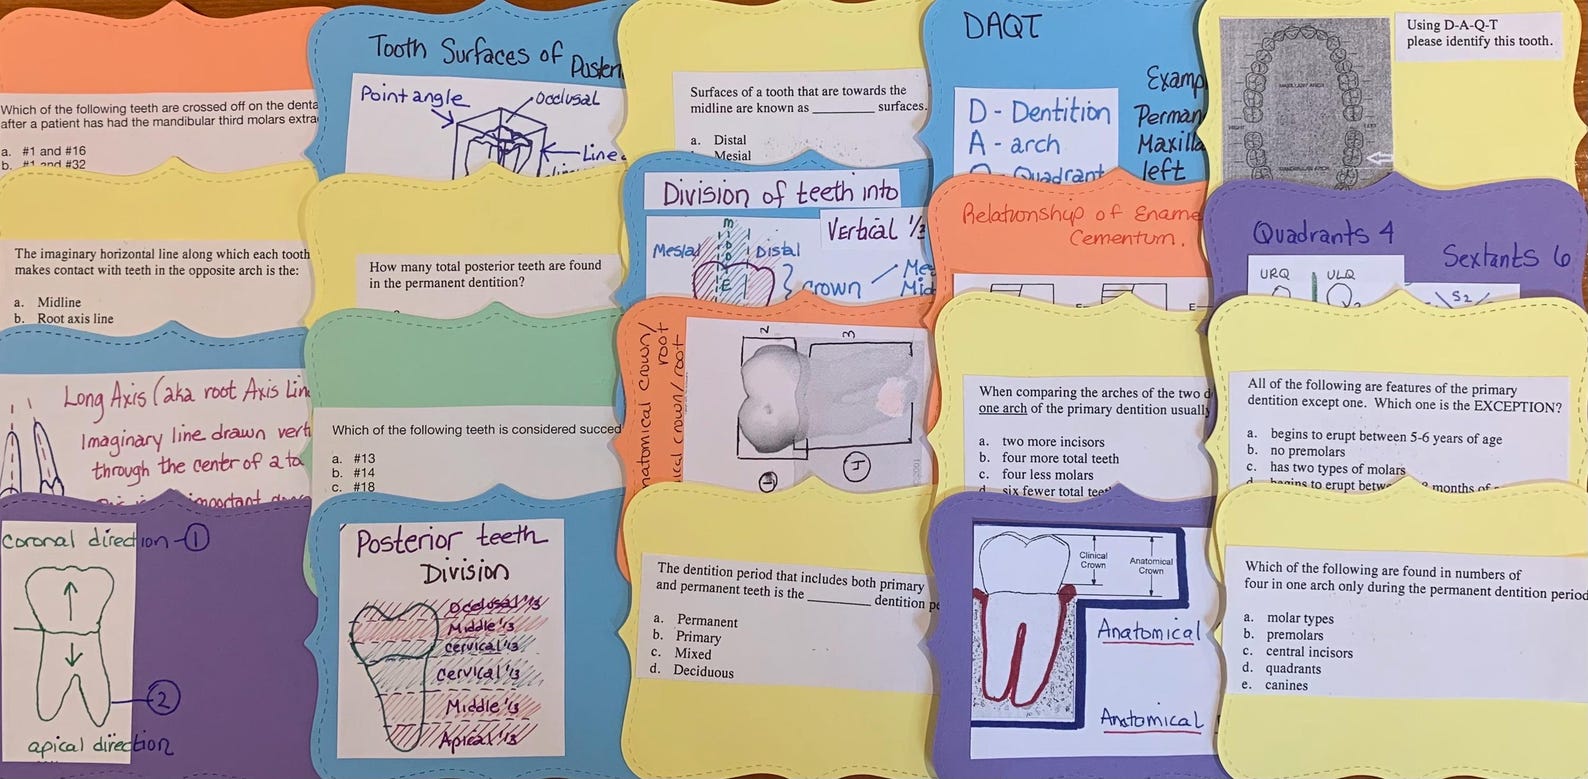 Which of the following teeth are crossed off on the denta
after a patient has had the mandibular third molars extra
a. #1 and #16
b. #1 and #32
Tooth Surfaces of Posteri
Point angle
occlusal
Line
Surfaces of a tooth that are towards the
midline are known as ________ surfaces.
a. Distal
Mesial
DAQT
D - Dentition
A - arch
Quadrant
Examp
Perman
Maxilla
left
Using D-A-Q-T
please identify this tooth.
MAXILLARY ARCH
RIGHT
LEFT
MANDIBULAR ARCH
The imaginary horizontal line along which each tooth
makes contact with teeth in the opposite arch is the:
a. Midline
b. Root axis line
How many total posterior teeth are found
in the permanent dentition?
Division of teeth into
Vertical 1/3
Mesial
Middle
Distal
crown
Me
Mid
Relationship of Ename
Cementum.
E
E
Quadrants 4
Sextants 6
URQ
ULQ
S2
Long Axis (aka root Axis Lin
Imaginary line drawn vert
through the center of a to
important
Which of the following teeth is considered succed
a. #13
b. #14
c. #18
natomical crown/
root
ical crown/root
2
3
1
When comparing the arches of the two d
one arch of the primary dentition usually
a. two more incisors
b. four more total teeth
c. four less molars
d. six fewer total teet
All of the following are features of the primary
dentition except one. Which one is the EXCEPTION?
a. begins to erupt between 5-6 years of age
b. no premolars
c. has two types of molars
d. begins to erupt betwe
months of
coronal direction - 1
2
apical direction
Posterior teeth
Division
Occlusal 1/3
Middle 1/3
cervical 1/3
cervical 1/3
Middle 1/3
Apical 1/3
The dentition period that includes both primary
and permanent teeth is the __________ dentition pe
a. Permanent
b. Primary
c. Mixed
d. Deciduous
Clinical
Crown
Anatomical
Crown
Anatomical
Anatomical
Which of the following are found in numbers of
four in one arch only during the permanent dentition period
a. molar types
b. premolars
c. central incisors
d. quadrants
e. canines